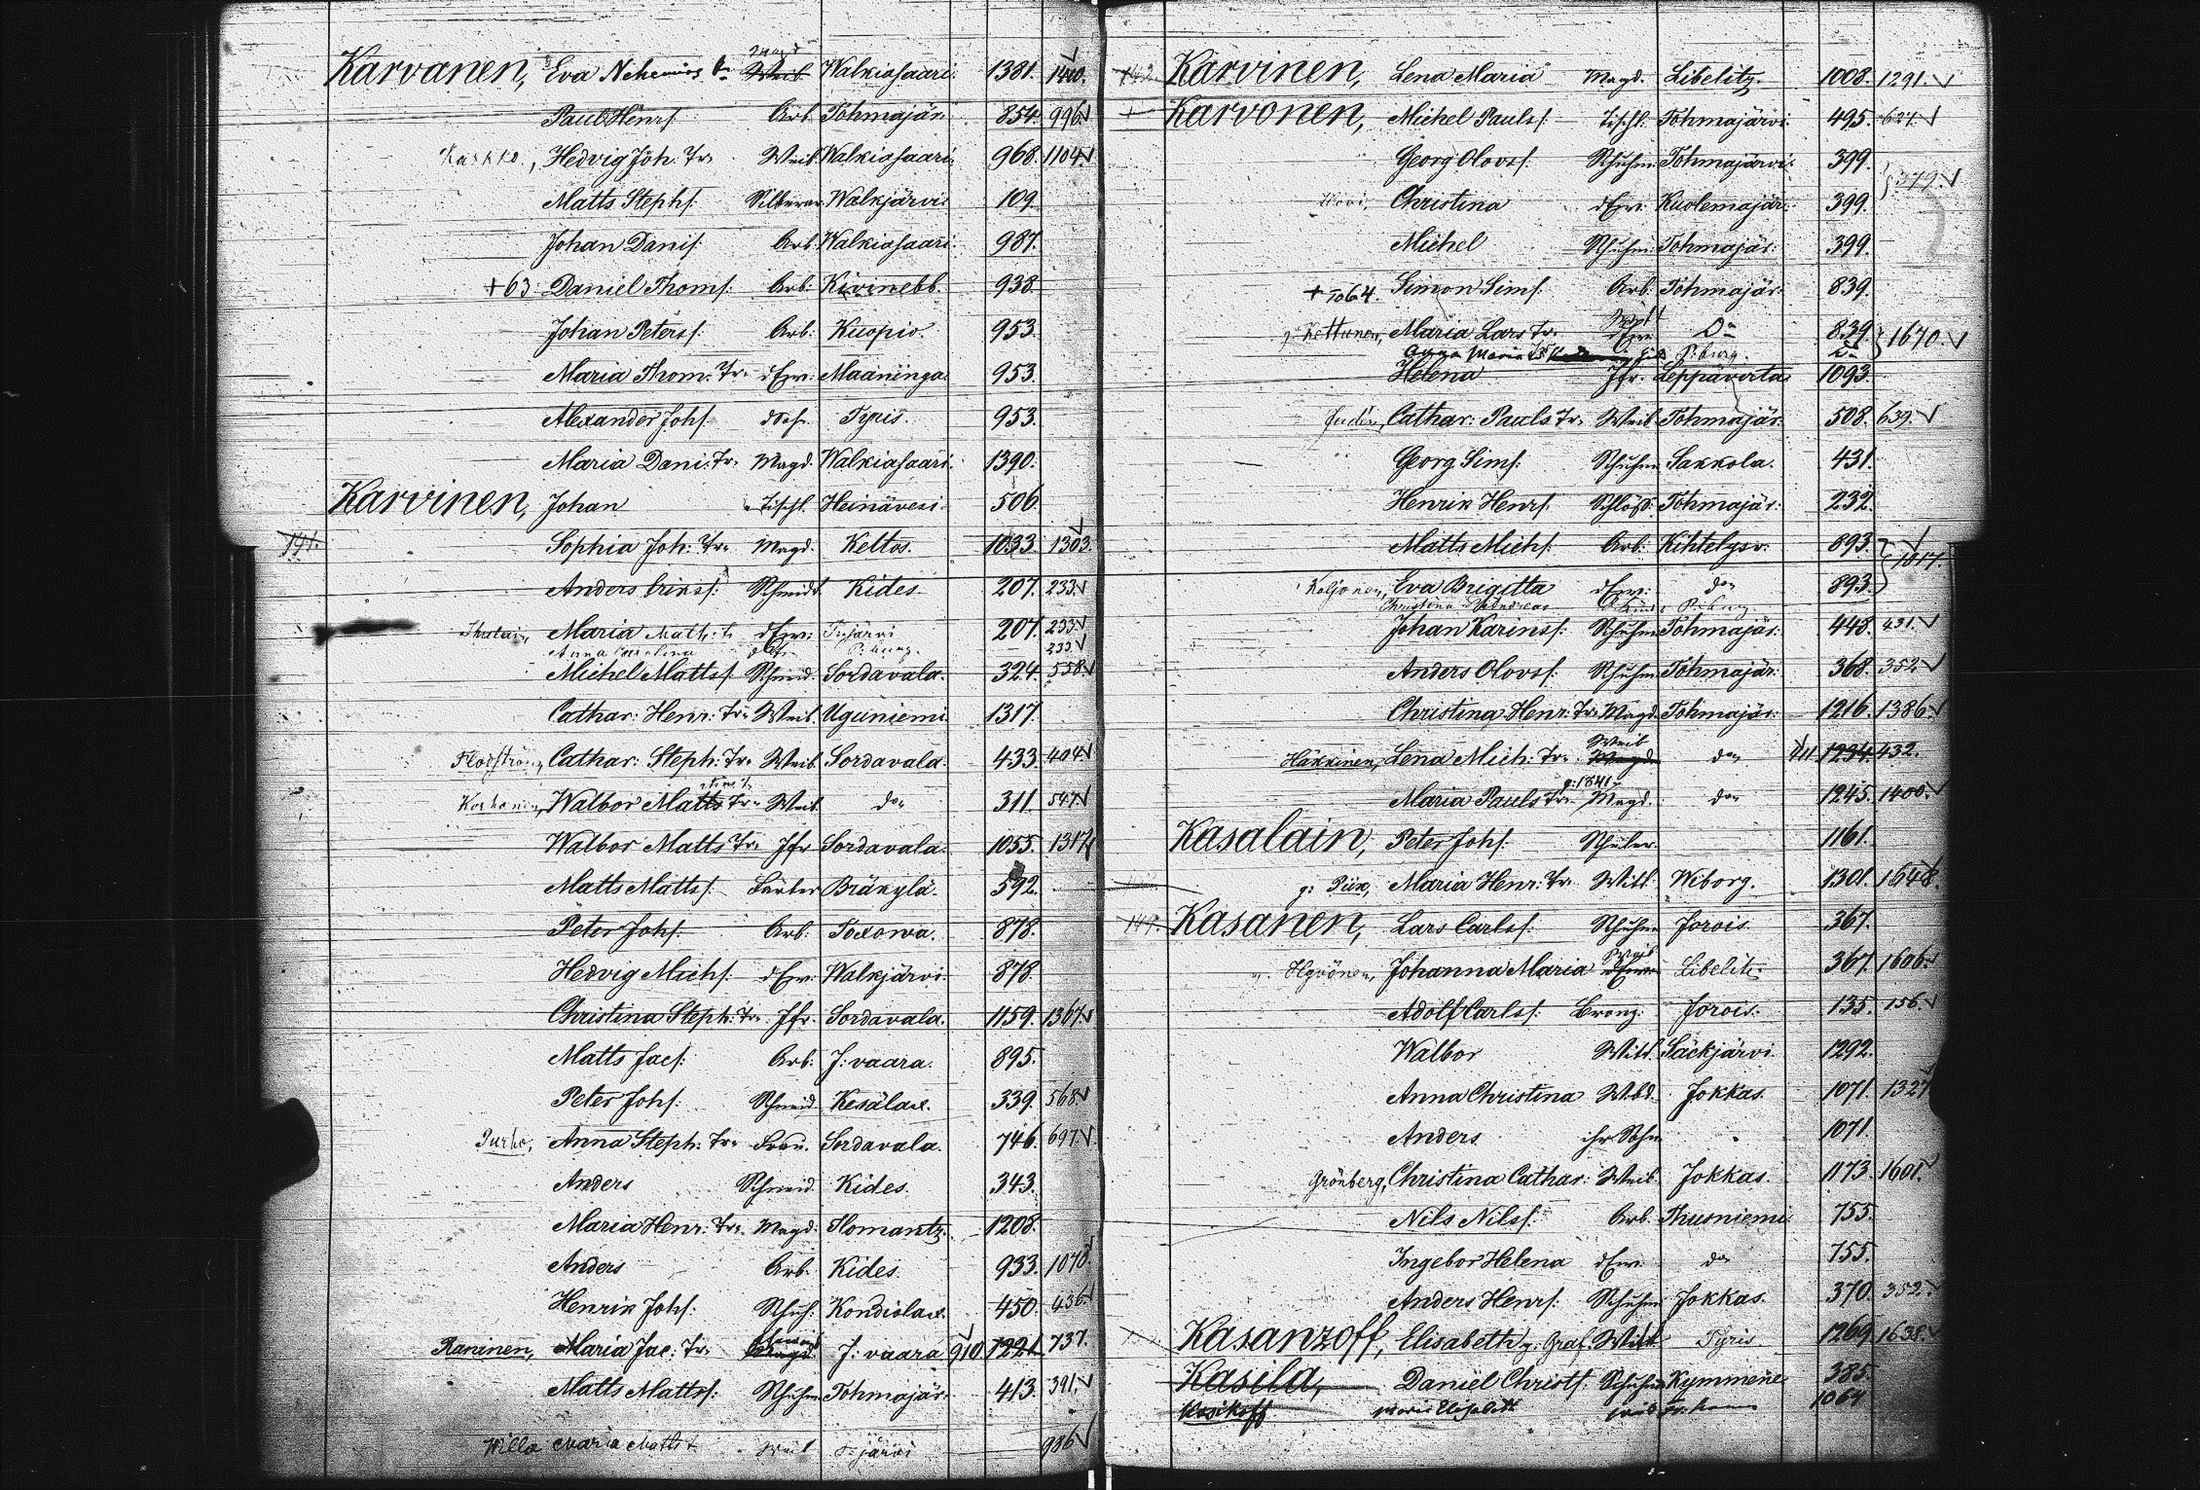 Karvanen, Eva Nehemias tr Magd Weib Walkiasaari. 1381. 1440.
Paul Henrs: Arb. Tohmajär: 854. 996.
Karkko, Hedvig Joh. Tr. Weib. Walkiasaari. 968. 1104.
Matts Stephs: Silberar Walkjärvi. 109.
Johan Danis: Arb. Walkiasaari. 987.
+63 Daniel Thoms: Arb: Kivinebb. 938.
Johan Peters: Arb: Kuopio. 953.
Maria Thom: Tr. d Erw: Maaninga. 953.
Alexander Johs: Tyris. 953.
Maria Dani: Tr. Magd. Walkiasaari. 1390.
Karvinen, Johan Tischl. Heinävesi. 506.
141. Sophia Joh: Tr. Magd. Keltos. 1033. 1303.
Anders Eriks: Schmidt Kides. 207. 233.
Maria Matts: t. d Erw: 207. 233
Anna Carolina P:burg. 233
Michel Matts: Schneid. Sordavala. 324. 558.
Cathar: Henr: Tr. Weib. Uguniemi. 1317.
Flodström, Cathar: Steph: Tr. Weib. Sordavala. 433. 404.
Korhonen, Walbor Matts Tr. Weib. do 311. 547
Walbor Matts Tr. Jfr Sordavala. 1055. 1317
Matts Matts: Bräkylä. 592.
Peter Johs: Arb: Toxowa. 878.
Hedvig Michs: d Erw: Walkjärvi. 878.
Christina Steph: Tr. Jfr. Sordavala. 1159. 1367.
Matts Jacs: Arb: J:vaara. 895.
Peter Johs: Schneid. Kesälax. 339. 568.
Purho, Anna Steph: Tr. Frau. Sordavala. 746. 697.
Anders Schneid Kides. 343.
Maria Henr: Tr. Magd: Ilomantz. 1208.
Anders Arb. Kides. 933. 1070
Henrik Johs: Schuh: Kondiolax. 450. 436.
Raninen, Maria Jac: Tr. Magd. J:vaara 910. 1221. 737.
Matts Matts: Schuhm Tohmajär: 413. 391.
Willa Maria Matts t. Weib S:järvi 986
142. Karvinen, Lena Maria Magd. Libelitz. 1008. 1291.
Karvonen, Michel Pauls: Tischl. Tohmajärvi. 495. 621.
Georg Olovs: Schuhm Tohmajärvi. 399.
379.
Christina d Erw: Kuolemajär: 399.
Michel Schuhm: Tohmajär: 399.
+ 1864. Simon Sims: Arb: Tohmajär: 839.
g. Kettunen, Maria Lars Tr. Do 839. 1670.
Anna Maria P:burg.
Helena Jfr. Leppävirta. 1093.
Judin, Cathar: Pauls Tr. Weib. Tohmajär: 508. 639.
Georg Sims: Schuhm Sakkola. 431.
Henrik Henrs: Schloss: Tohmajär: 232.
Matts Michs: Arb: Kihtelysv: 893. 1017.
Koljonen, Eva Brigitta d Erw: do 893.
Christina P:burg.
Johan Karins: Schuhm Tohmajär: 448. 431.
Anders Olovs: Schuhm Tohmajär: 368. 352
Christina Henr: Tr. Magd. Tohmajär: 1216. 1386.
Häkkinen, Lena Mich: Tr. Weib Magd do 1234. 432.
Maria Pauls Tr. g: 1841 Magd. do 1245. 1400.
Kasalain, Peter Johs: Schüler 1161.
g: Piik, Maria Henr: Tr. Witt: Wiborg. 1301. 1648.
149. Kasanen, Lars Carls: Schuhm Jorois. 367.
g. Hyvönen, Johanna Maria Weib d Erw Libelitz. 367. 1606.
Adolf Carls: Bronz: Jorois. 135. 156.
Walbor Witt. Säckjärvi. 1292.
Anna Christina Jokkas. 1071. 1327
Anders ihr Sohn 1071.
Grönberg, Christina Cathar: Weib Jokkas. 1173. 1601.
Nils Nils: Arb. Thusniemi. 755.
Ingebor Helena d Erw. do 755.
Anders Henrs: Schuhm Jokkas. 370. 352.
Kasanzoff, Elisabeth g: Graf. Witt Tyris. 1269. 1638.
Kasila, Daniel Christs: Schuhm Kymmene 385.
Kosikoff Maria Elisabeth 1064